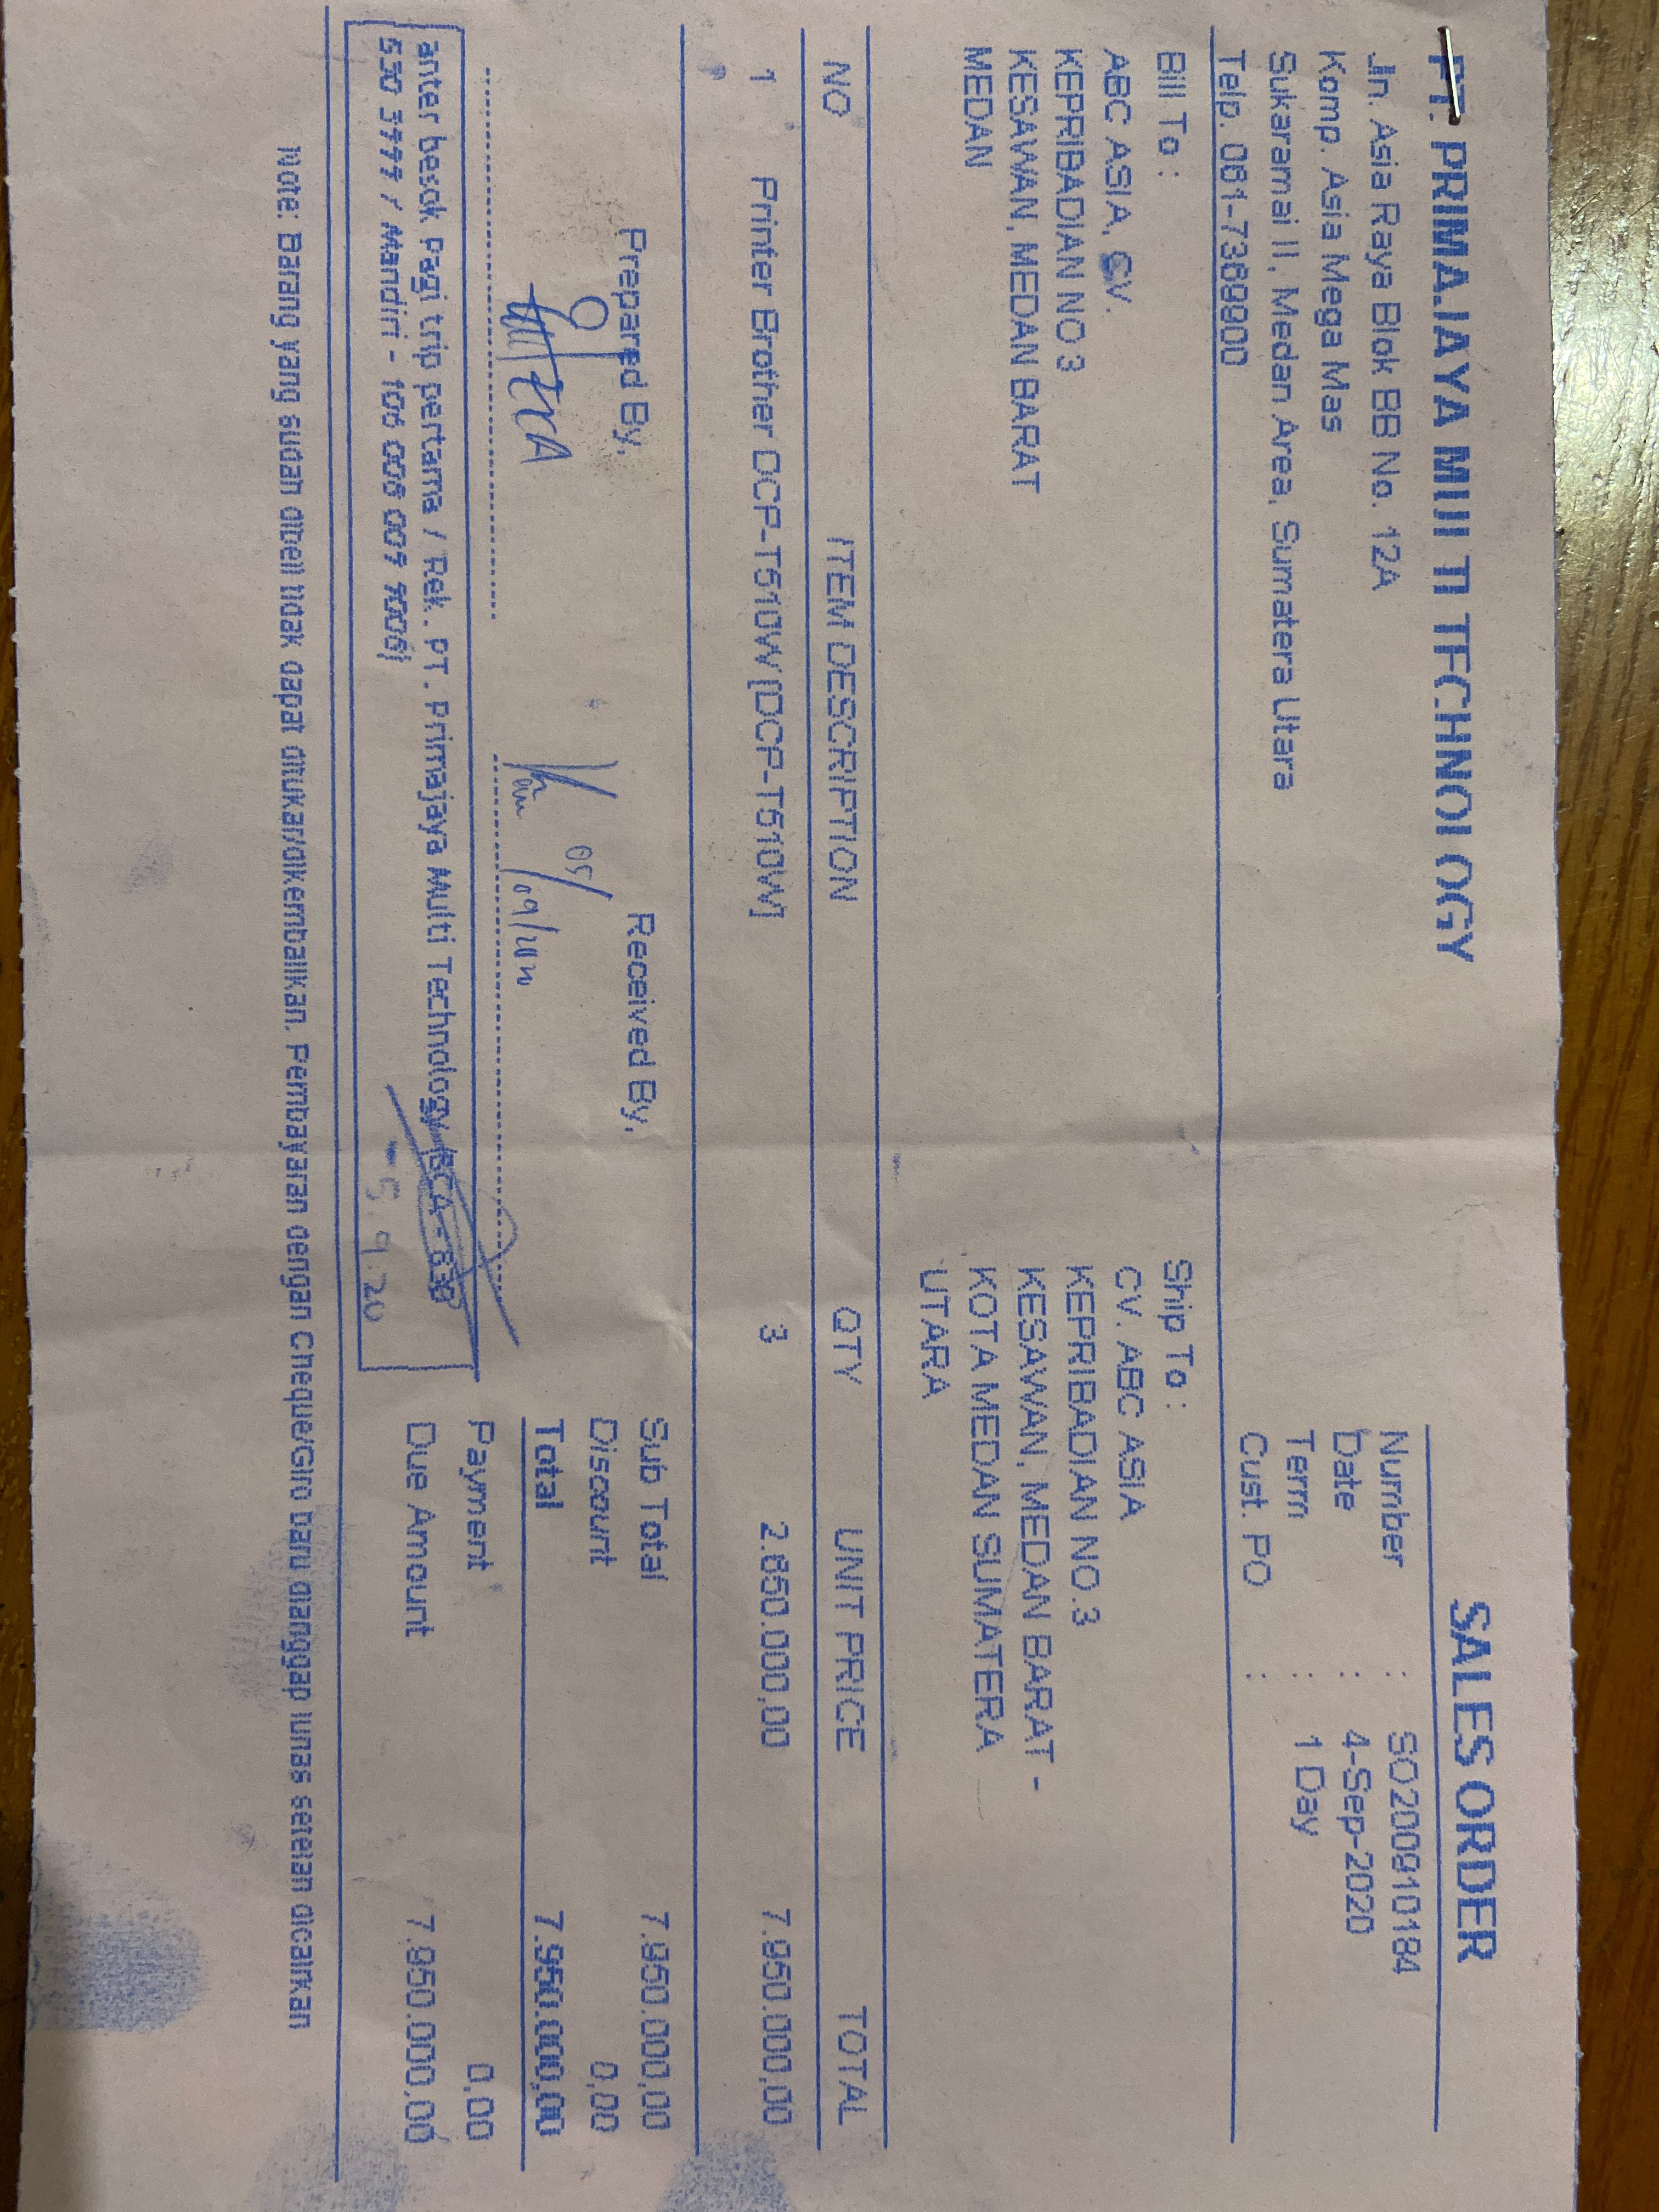 PT. PRIMAJAYA MULTI TECHNOLOGY
SALES ORDER
Jln. Asia Raya Blok BB No. 12A
Komp. Asia Mega Mas
Sukaramai II, Medan Area, Sumatera Utara
Telp. 061-7369900
Number : SO200910184
Date : 4-Sep-2020
Term : 1 Day
Cust. PO :
Bill To :
ABC ASIA, CV.
KEPRIBADIAN NO 3
KESAWAN, MEDAN BARAT
MEDAN
Ship To :
CV. ABC ASIA
KEPRIBADIAN NO.3
KESAWAN, MEDAN BARAT -
KOTA MEDAN SUMATERA
UTARA
NO ITEM DESCRIPTION QTY UNIT PRICE TOTAL
1 Printer Brother DCP-T510W [DCP-T510W] 3 2.650.000,00 7.950.000,00
Prepared By,
Received By,
05/
/09/2020
Sub Total 7.950.000,00
Discount 0,00
Total 7.950.000,00
Payment 0,00
Due Amount 7.950.000,00
anter besok Pagi trip pertama / Rek. PT. Primajaya Multi Technology (BCA - 830
530 3999 / Mandiri - 106 006 009 9006)
5.9.20
Note: Barang yang sudah dibeli tidak dapat ditukar/dikembalikan. Pembayaran dengan Cheque/Giro baru dianggap lunas setelah dicairkan